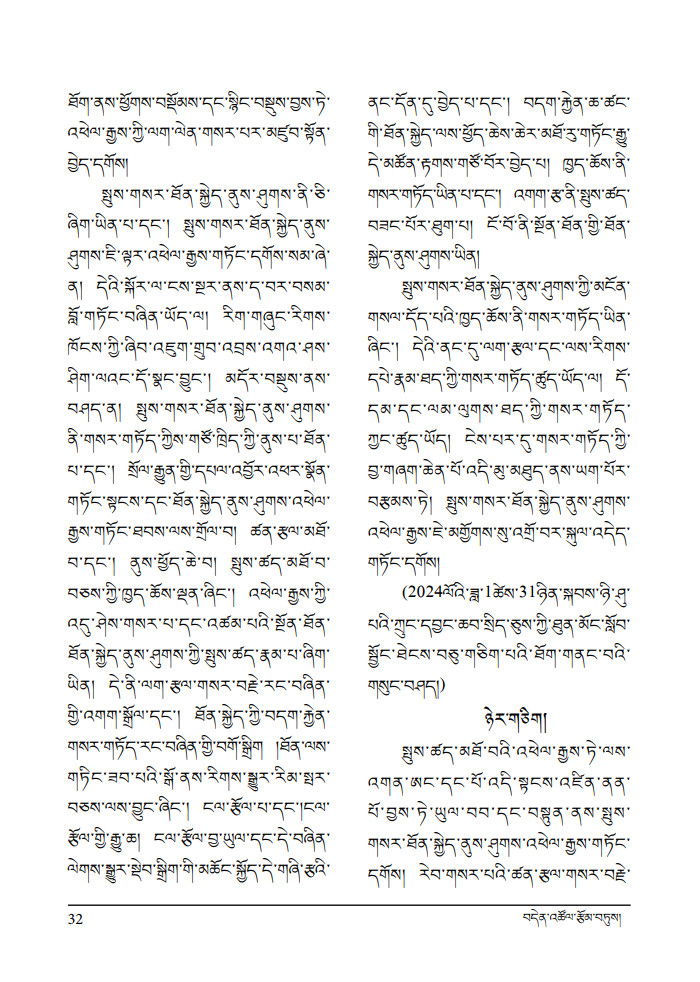 ཐོག་ནས་ཕྱོགས་བསྡོམས་དང་སྙིང་བསྡུས་བྱས་ཏེ་
འཕེལ་རྒྱས་ཀྱི་ལག་ལེན་གསར་པར་མཛུབ་སྟོན་
བྱེད་དགོས།
སྤུས་གསར་ཐོན་སྐྱེད་ནུས་ཤུགས་ནི་ཅི་
ཞིག་ཡིན་པ་དང་། སྤུས་གསར་ཐོན་སྐྱེད་ནུས་
ཤུགས་ཇི་ལྟར་འཕེལ་རྒྱས་གཏོང་དགོས་སམ་ཞེ་
ན། དེའི་སྐོར་ལ་ངས་སྔར་ནས་ད་བར་བསམ་
བློ་གཏོང་བཞིན་ཡོད་ལ། རིག་གཞུང་རིགས་
ཁོངས་ཀྱི་ཞིབ་འཇུག་གྲུབ་འབྲས་འགའ་ཤས་
ཤིག་ལའང་དོ་སྣང་བྱུང་། མདོར་བསྡུས་ནས་
བཤད་ན། སྤུས་གསར་ཐོན་སྐྱེད་ནུས་ཤུགས་
ནི་གསར་གཏོད་ཀྱིས་གཙོ་ཁྲིད་ཀྱི་ནུས་པ་ཐོན་
པ་དང་། སྲོལ་རྒྱུན་གྱི་དཔལ་འབྱོར་འཕར་སྣོན་
གཏོང་སྟངས་དང་ཐོན་སྐྱེད་ནུས་ཤུགས་འཕེལ་
རྒྱས་གཏོང་ཐབས་ལས་གྲོལ་བ། ཚན་རྩལ་མཐོ་
བ་དང་། ནུས་ཕྱོད་ཆེ་བ། སྤུས་ཚད་མཐོ་བ་
བཅས་ཀྱི་ཁྱད་ཆོས་ལྡན་ཞིང་། འཕེལ་རྒྱས་ཀྱི་
འདུ་ཤེས་གསར་པ་དང་འཚམ་པའི་སྔོན་ཐོན་
ཐོན་སྐྱེད་ནུས་ཤུགས་ཀྱི་སྤུས་ཚད་རྣམ་པ་ཞིག་
ཡིན། དེ་ནི་ལག་རྩལ་གསར་བརྗེ་རང་བཞིན་
གྱི་འགག་སྒྲོལ་དང་། ཐོན་སྐྱེད་ཀྱི་བདག་རྐྱེན་
གསར་གཏོད་རང་བཞིན་གྱི་བགོ་སྒྲིག །ཐོན་ལས་
གཏིང་ཟབ་པའི་སྒོ་ནས་རིགས་སྒྱུར་རིམ་སྤར་
བཅས་ལས་བྱུང་ཞིང་། ངལ་རྩོལ་པ་དང་།ངལ་
རྩོལ་གྱི་རྒྱུ་ཆ། ངལ་རྩོལ་བྱ་ཡུལ་དང་དེ་བཞིན་
ལེགས་སྒྱུར་སྡེབ་སྒྲིག་གི་མཆོང་སྐྱོད་དེ་གཞི་རྩའི་
ནང་དོན་དུ་བྱེད་པ་དང་། བདག་རྐྱེན་ཆ་ཚང་
གི་ཐོན་སྐྱེད་ལས་ཕྱོད་ཆེས་ཆེར་མཐོ་རུ་གཏོང་རྒྱུ་
དེ་མཚོན་རྟགས་གཙོ་བོར་བྱེད་པ། ཁྱད་ཆོས་ནི་
གསར་གཏོད་ཡིན་པ་དང་། འགག་རྩ་ནི་སྤུས་ཚད་
བཟང་པོར་ཐུག་པ། ངོ་བོ་ནི་སྔོན་ཐོན་གྱི་ཐོན་
སྐྱེད་ནུས་ཤུགས་ཡིན།
སྤུས་གསར་ཐོན་སྐྱེད་ནུས་ཤུགས་ཀྱི་མངོན་
གསལ་དོད་པའི་ཁྱད་ཆོས་ནི་གསར་གཏོད་ཡིན་
ཞིང་། དེའི་ནང་དུ་ལག་རྩལ་དང་ལས་རིགས་
དཔེ་རྣམ་ཐད་ཀྱི་གསར་གཏོད་ཚུད་ཡོད་ལ། དོ་
དམ་དང་ལམ་ལུགས་ཐད་ཀྱི་གསར་གཏོད་
ཀྱང་ཚུད་ཡོད། ངེས་པར་དུ་གསར་གཏོད་ཀྱི་
བྱ་གཞག་ཆེན་པོ་འདི་མུ་མཐུད་ནས་ཡག་པོར་
བརྩམས་ཏེ། སྤུས་གསར་ཐོན་སྐྱེད་ནུས་ཤུགས་
འཕེལ་རྒྱས་ཇེ་མགྱོགས་སུ་འགྲོ་བར་སྐུལ་འདེད་
གཏོང་དགོས།
(2024ལོའི་ཟླ་1ཚེས་31ཉིན་སྐབས་ཉི་ཤུ་
པའི་ཀྲུང་དབྱང་ཆབ་སྲིད་ཅུས་ཀྱི་ཐུན་མོང་སློབ་
སྦྱོང་ཐེངས་བཅུ་གཅིག་པའི་ཐོག་གནང་བའི་
གསུང་བཤད།)
ཉེར་གཅིག།
སྤུས་ཚད་མཐོ་བའི་འཕེལ་རྒྱས་ཏེ་ལས་
འགན་ཨང་དང་པོ་འདི་སྟངས་འཛིན་ནན་
པོ་བྱས་ཏེ་ཡུལ་བབ་དང་བསྟུན་ནས་སྤུས་
གསར་ཐོན་སྐྱེད་ནུས་ཤུགས་འཕེལ་རྒྱས་གཏོང་
དགོས། རེབ་གསར་པའི་ཚན་རྩལ་གསར་བརྗེ་
32
བདེན་འཚོལ་རྩོམ་བཏུས།